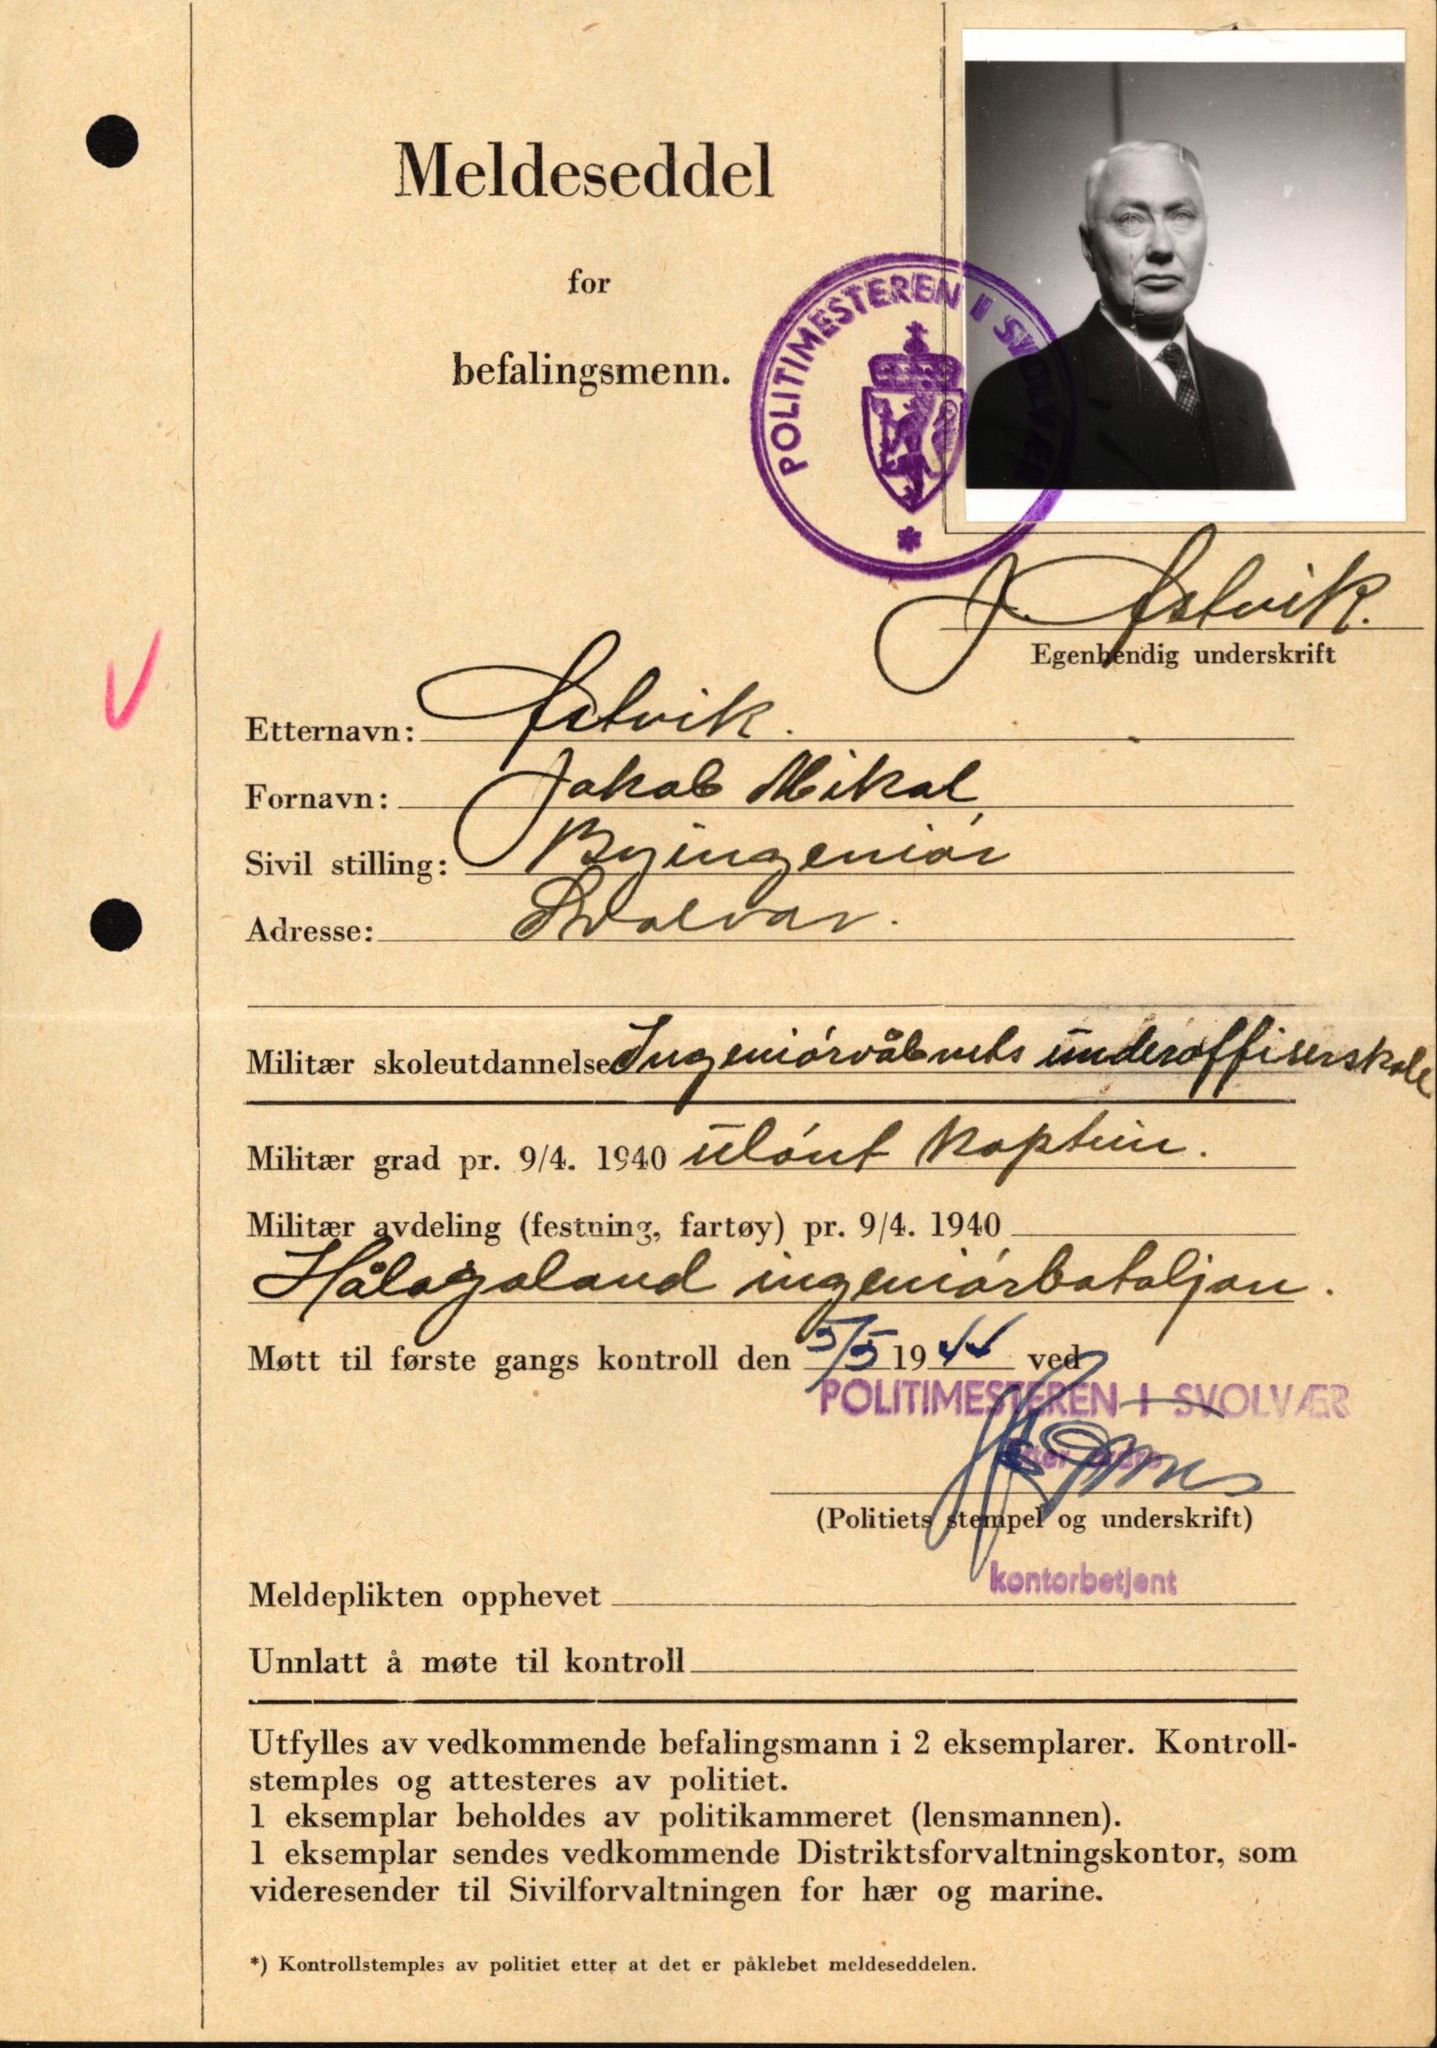 Meldeseddel
for
befalingsmenn.
POLITIMESTEREN I SVOLVÆR
J. Astvik.
Egenhendig underskrift
Etternavn: Astvik.
Fornavn: Jakob Mikal
Sivil stilling: Byingeniør
Adresse: Svolvær.
Militær skoleutdannelse Ingeniørvåbnets underoffiserskole
Militær grad pr. 9/4. 1940 ulønt kaptein.
Militær avdeling (festning, fartøy) pr. 9/4. 1940
Hålogaland ingeniørbataljon.
Møtt til første gangs kontroll den 5/5 1944 ved
POLITIMESTEREN I SVOLVÆR
(Politiets stempel og underskrift)
kontorbetjent
Meldeplikten opphevet
Unnlatt å møte til kontroll
Utfylles av vedkommende befalingsmann i 2 eksemplarer. Kontroll-
stemples og attesteres av politiet.
1 eksemplar beholdes av politikammeret (lensmannen).
1 eksemplar sendes vedkommende Distriktsforvaltningskontor, som
videresender til Sivilforvaltningen for hær og marine.
*) Kontrollstemples av politiet etter at det er påklebet meldeseddelen.